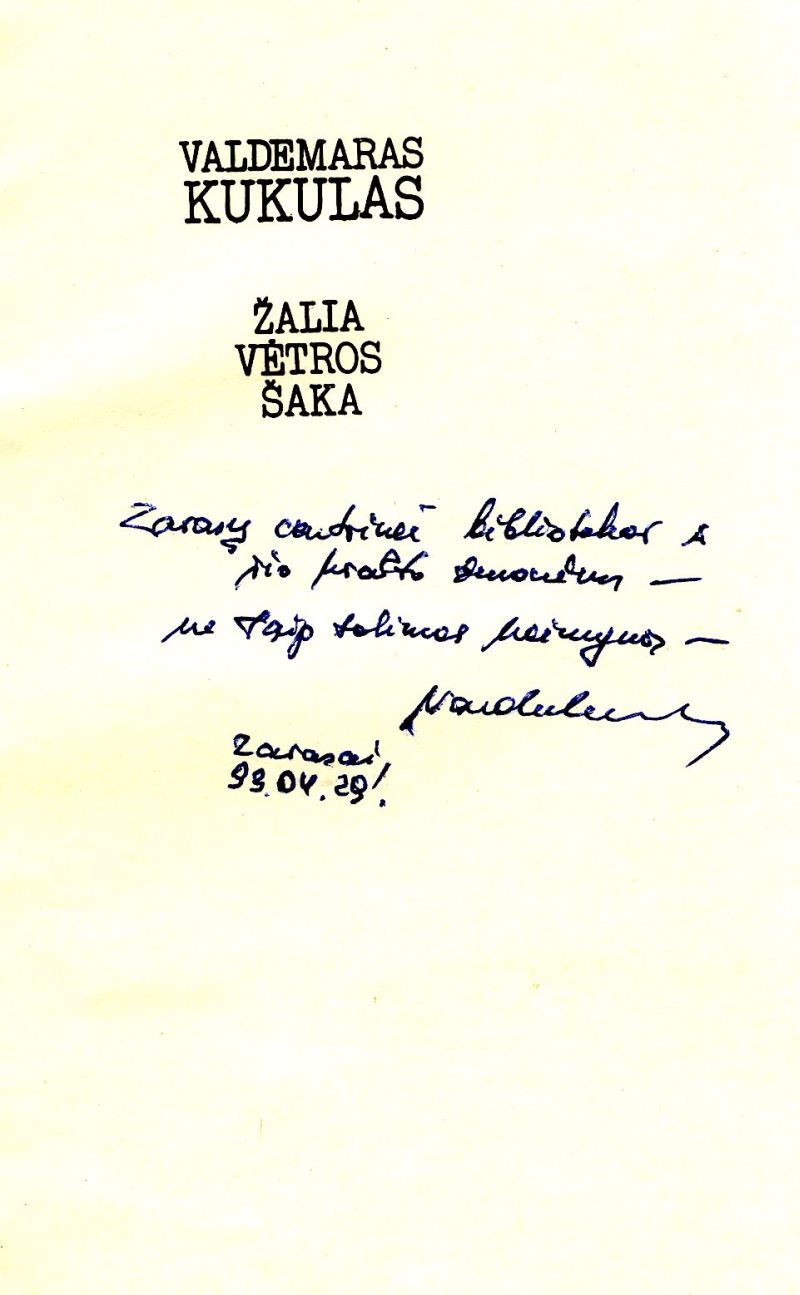 VALDEMARAS
KUKULAS
ŽALIA
VĖTROS
ŠAKA
Zarasų centrinei bibliotekai ir
šio krašto žmonėms —
ne taip tolimos kaimynos —
Zarasai
99.04.29!